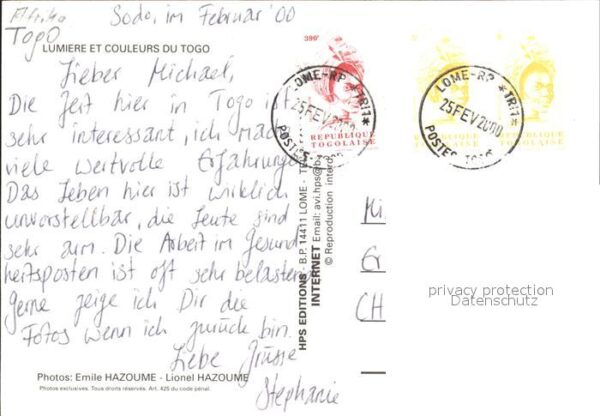 Afrika
Togo
Sodo, im Februar '00
LUMIERE ET COULEURS DU TOGO
Lieber Michael,
Die Zeit hier in Togo ist
sehr interessant, ich mache
viele wertvolle Erfahrungen
Das Leben hier ist wirklich
unvorstellbar, die Leute sind
sehr arm. Die Arbeit im Gesund
heitsposten ist oft sehr belastend
gerne zeige ich Dir die
Fotos wenn ich zurück bin.
Liebe Grüsse
Stephanie
Photos: Emile HAZOUME - Lionel HAZOUME
Photos exclusives. Tous droits réservés. Art. 425 du code pénal.
HPS EDITIONS - B.P. 14411 LOME - TE
INTERNET Email: avi.hps@bz
© Reproduction interd
390F
REPUBLIQUE
TOGOLAISE
LOME-RP *TRI1*
25 FEV 2000
POSTES
LOME-RP *TRI1*
25 FEV 2000
POSTES TOGO
CH
privacy protection
Datenschutz